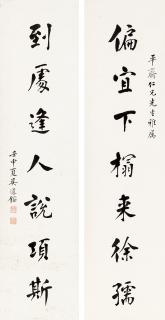 齋仁兄先生雅屬
偏宜下榻来徐孺
到處逢人說項斯
壬申夏吳道鎔